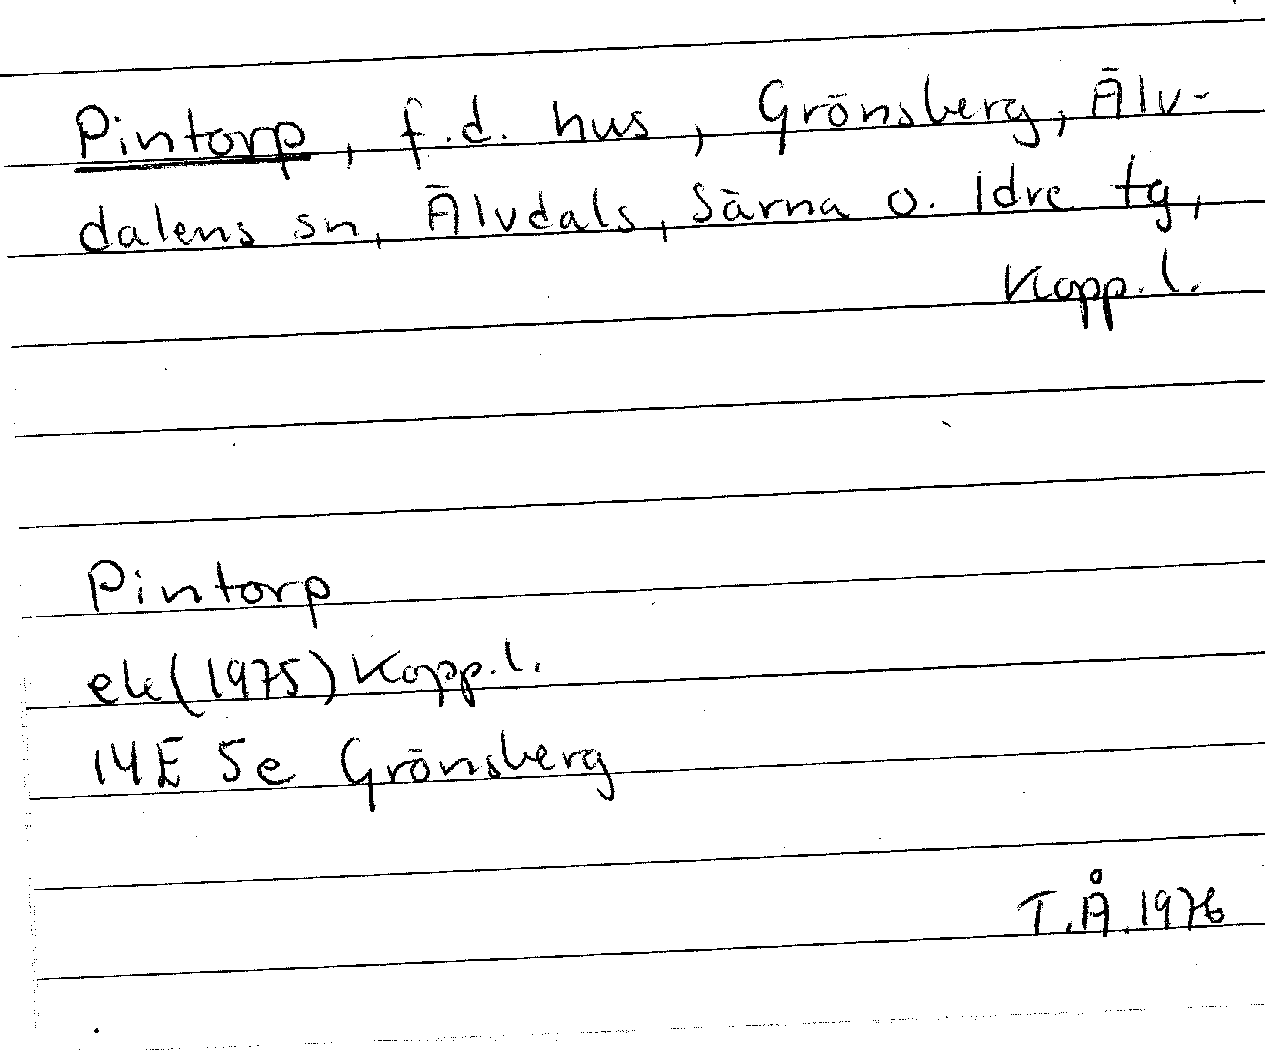 Pintorp, f.d. hus, Grönsberg, Älv-
dalens sn, Älvdals, Särna o. Idre tg,
Kopp. l.
Pintorp
ek (1975) Kopp. l.
14E 5e Grönsberg
T.Å. 1976